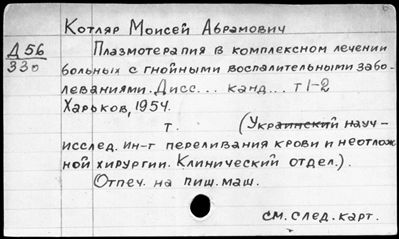 Котляр Моисей Абрамович
Д 56
330
Плазмотерапия в комплексном лечении
больных с гнойными воспалительными забо-
леваниями. Дисс... канд... т 1-2
Харьков, 1954.
т. (Украинский науч-
исслед. ин-т переливания крови и неотлож
ной хирургии. Клинический отдел.).
Отпеч. на пиш. маш.
см. след. карт.